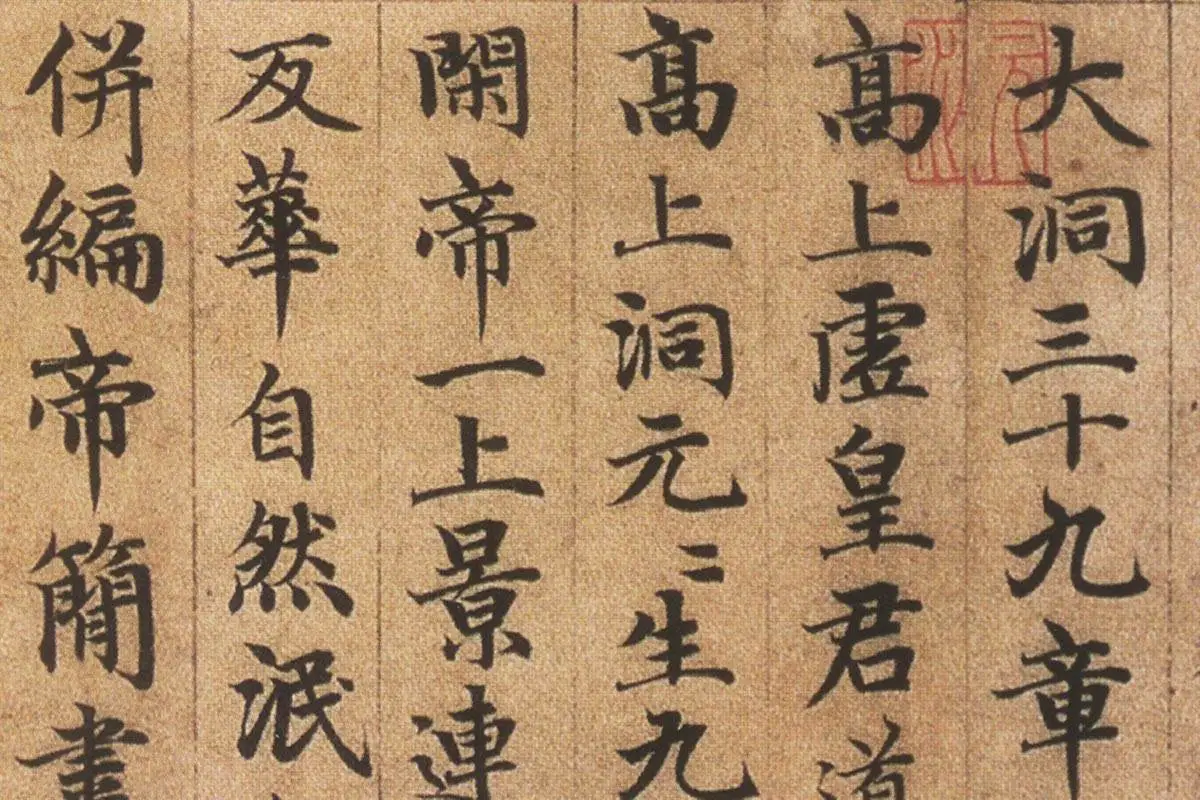 大洞三十九章
高上虛皇君道
高上洞元〻生九
閑帝一上景連
反華自然泯
併編帝簡書